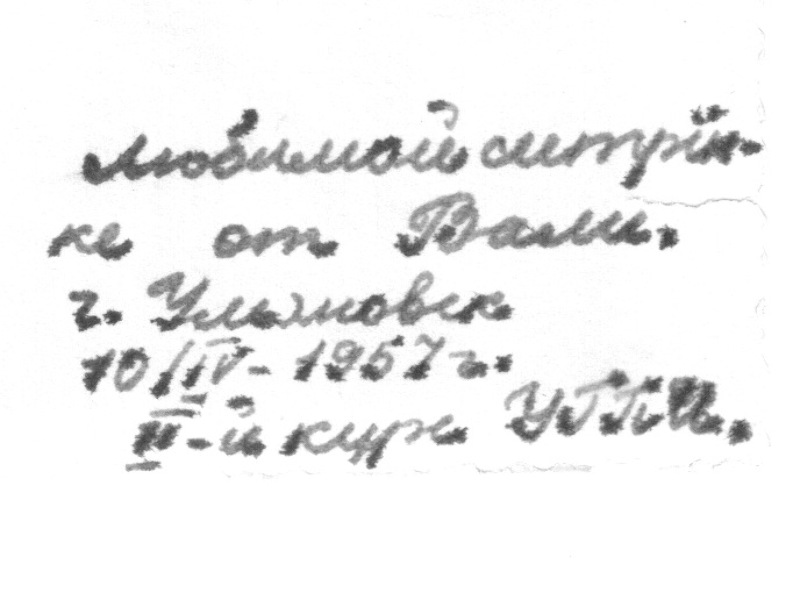 Любимой систрён-
ке от Вали.
г. Ульяновск
10/IV- 1957 г.
II-й курс УГПИ.